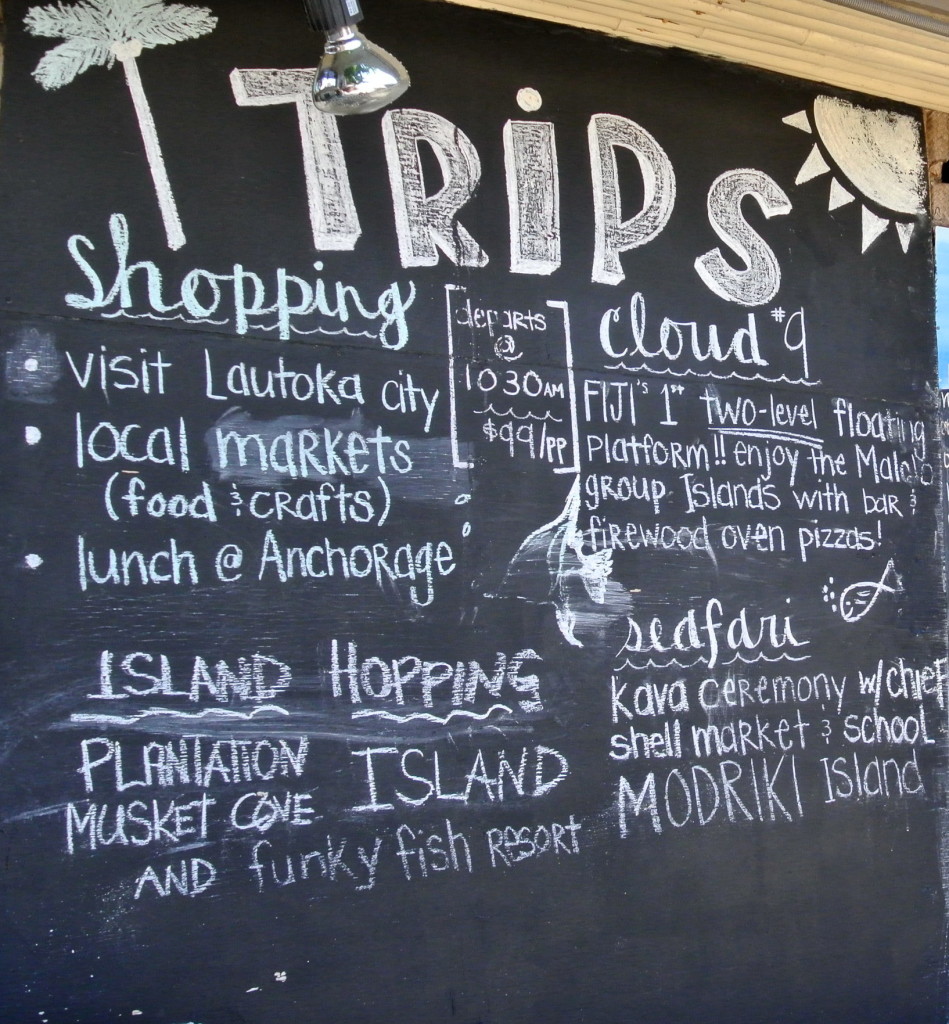 TRiPS
Shopping
• visit Lautoka city
• local markets
(food & crafts)
• lunch @ Anchorage
departs
@
10 30AM
$99/pp
cloud #9
FIJI's 1st two-level floating
Platform!! enjoy the Malolo
group Islands with bar &
firewood oven pizzas!
ISLAND HOPPING
PLANTATION ISLAND
MUSKET COVE
AND funky fish RESORT
seafari
kava ceremony w/chief
shell market & school
MODRIKI Island